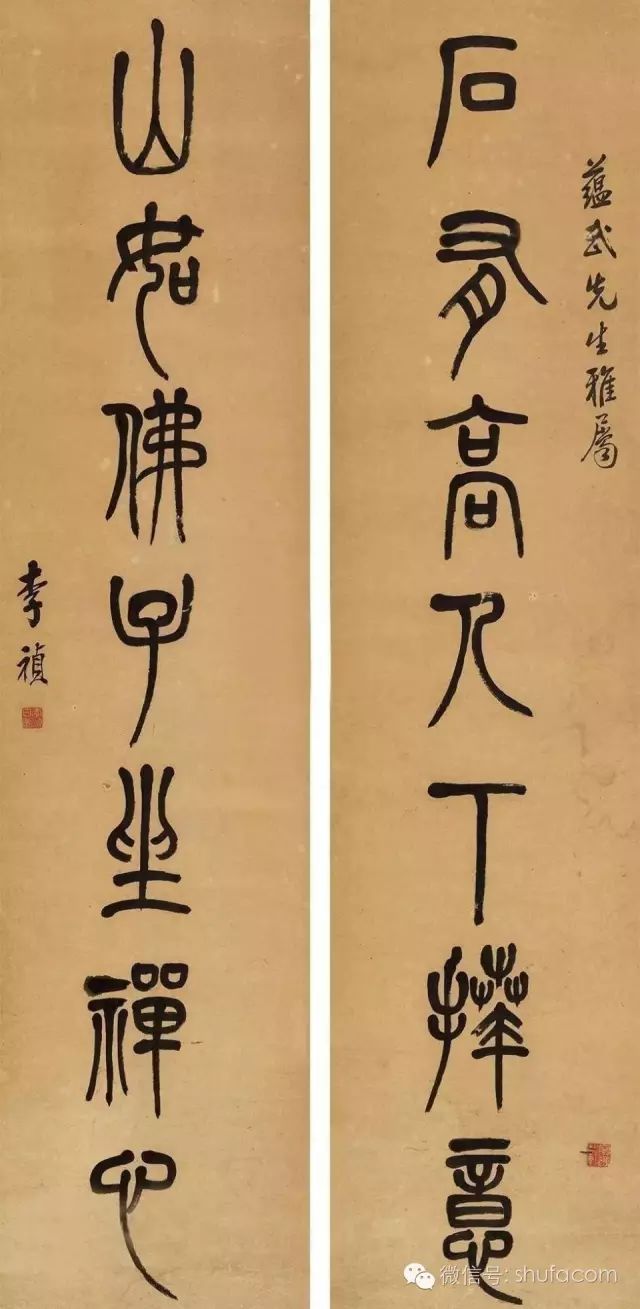 蘊武先生雅屬
石有高人下拜意
山如佛子坐禪心
李禎
微信号: shufacom